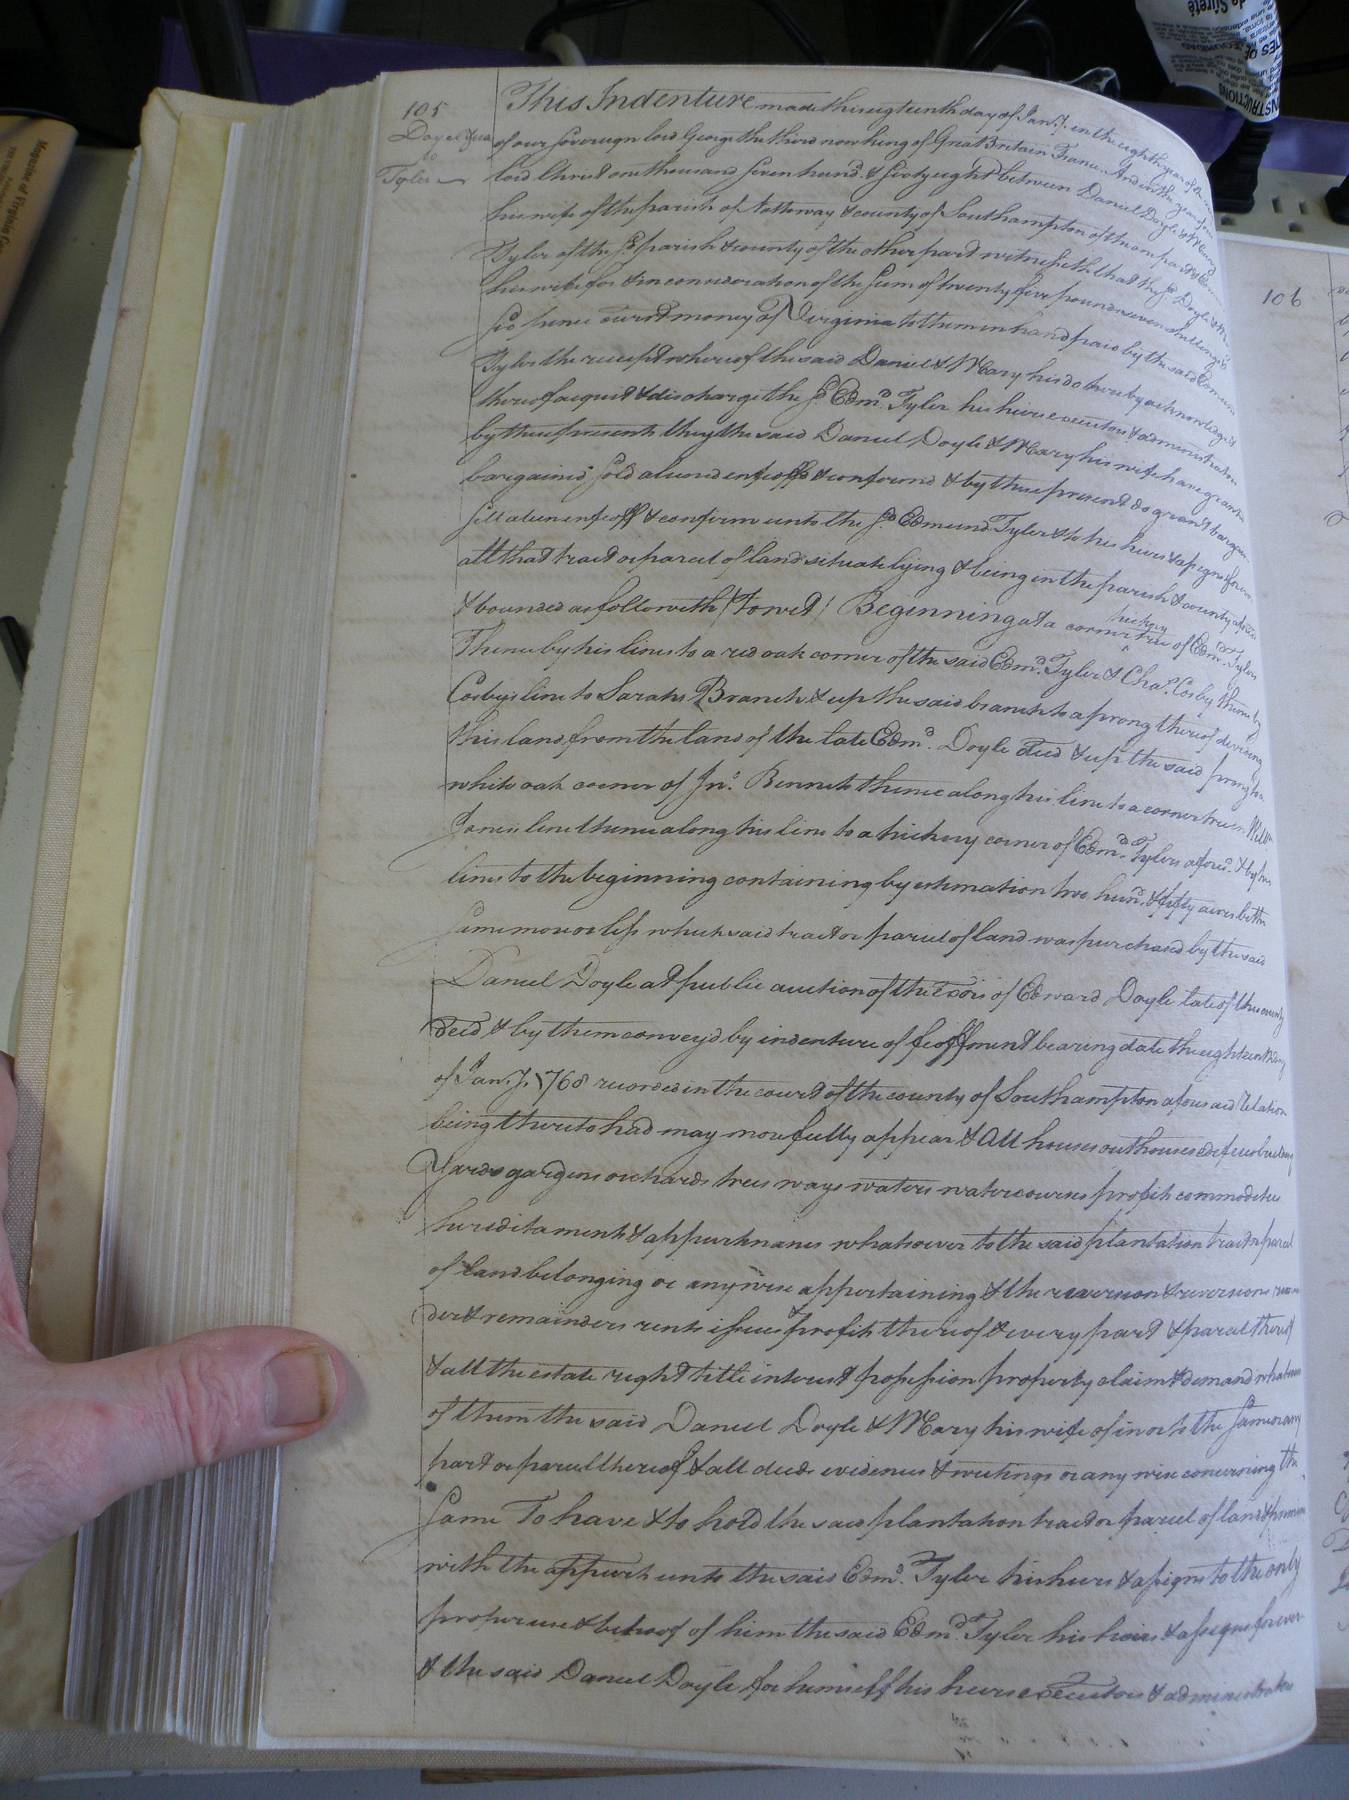 105
Doyel &ux
to
Tyler
This Indenture made this eigteenth day of Jany. in the eighth year of the
of our Sovereign lord George the third now king of Great Britain France And in the year of our
lord Christ one thousand seven hund. & sixty eight between Daniel Doyle & Mary
his wife of the parish of Nottoway & county of Southampton of the one part &
Tyler of the sd. parish & county of the other part witnesseth that the sd. Doyle &
his wife for & in consideration of the sum of twenty five pounds seven shillings
six pence curent money of Virginia to them in hand paid by the said Edmund
Tyler the receipt whereof the said Daniel & Mary his do hereby acknowledge &
thereof acquit & discharge the sd. Edmd. Tyler his heirs executors & administrators
by these presents they the said Daniel Doyle & Mary his wife have granted
bargained sold aliend enfeoff & confirmd & by these present do grant bargain
sell alien enfeoff & confirm unto the sd. Edmund Tyler & to his heirs & assigns forever
all that tract or parcel of land situate lying & being in the parish & county aforesd
& bounded as followeth (Towit) Beginning at a corner hickory tree of Edmd. Tylers
Thence by his lines to a red oak corner of the said Edmd. Tyler & Chas. Cosby thence by
Cosbys line to Sarahs Branch & up the said branch to a prong thereof deviding
this land from the land of the late Edmd. Doyle decd & up the said prong to a
white oak corner of Jno. Bennets thence along his line to a corner tree in Willm
Jones's line thence along his line to a hickory corner of Edmd. Tylers aforesd. & by his
lines to the beginning containing by estimation two hund. & fifty acres be the
same more or less which said tract or parcel of land was purchased by the said
Daniel Doyle at publie auction of the Exors of Edward Doyle late of the county
decd & by them convey'd by indenture of feoffment bearing date the eighteenth day
of Jany. 1768 recorded in the court of the county of Southampton aforesaid Relation
being thereto had may more fully appear & All houses outhouses edifices buildings
Yards gardens orchards trees ways waters watercourses profits commodeties
hereditaments & appurtenances whatsoever to the said plantation tract or parcel
of land belonging or anywise appertaining & the reversion & reversions remain
der & remainders rents issues & profits thereof & every part & parcel thereof
& all the estate right & title interest possession property claim & demand whatsoever
of them the said Daniel Doyle & Mary his wife of in or to the same or any
part or parcel thereof & all deeds evidences & writings or any wise concerning the
same To have & to hold the said plantation tract or parcel of land & premises
with the appurts unto the said Edmd. Tyler his heirs & assigns to the only
proper use & behoof of him the said Edmd. Tyler his heirs & assigns forever
& the said Daniel Doyle for himself his heirs executors & administrators
106
Magazine of Virginia
INSTRUCTIONS